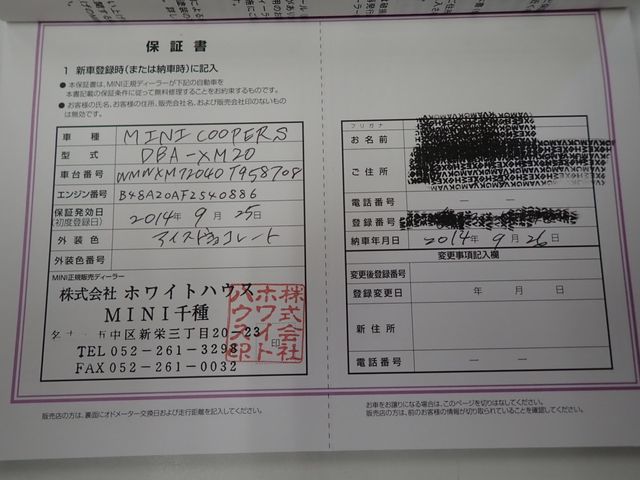 保証書
1 新車登録時(または納車時)に記入
● 本保証書は、MINI正規ディーラーが下記の自動車を
本書記載の保証条件に従って無料修理することをお約束するものです。
● お客様の氏名、お客様の住所、販売会社名、および販売会社印のないものは
は無効です。
車種 MINI COOPER S
型式 DBA-XM20
車台番号 WMWXM72040T958708
エンジン番号 B48A20AF2540886
保証発効日 2014年 9月 25日
(初度登録日)
外装色 アイスドチョコレート
外装色番号
MINI正規販売ディーラー
株式会社 ホワイトハウス
MINI千種
中区新栄三丁目20-23
TEL 052-261-3298
FAX 052-261-0032
株式会社
ホワイト
ハウス印
印
販売店の方は、裏面にオドメーター交換日および走行距離を記入してください。
フリガナ
お名前
ご住所
電話番号 — —
登録番号
納車年月日 2014年 9月 26日
変更事項記入欄
変更後登録番号
登録変更日 年 月 日
新住所
電話番号 — —
お車をお譲りになる場合は、このページを切りはなしてください。
販売店の方は、前のお客様の情報が切り取られていることを確認してください。